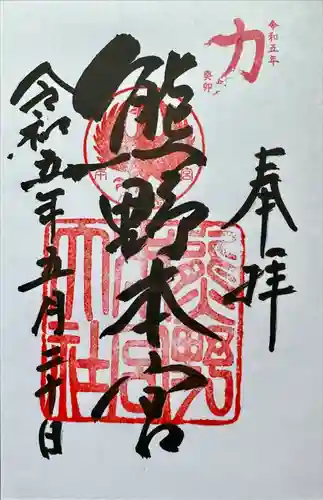 力
令和五年
癸卯
奉拝
熊野本宮
令和五年五月二十日
熊野
本宮
大社